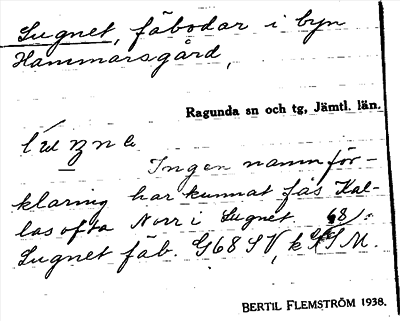 Lugnet, fäbodar i byn
Hammarsgård,
Ragunda sn och tg, Jämtl. län.
Ingen namnför-
klaring har kunnat fås Kal-
las ofta Norr i Lugnet. 68/.
Lugnet fäb. G68 SV, k M.
BERTIL FLEMSTRÖM 1938.